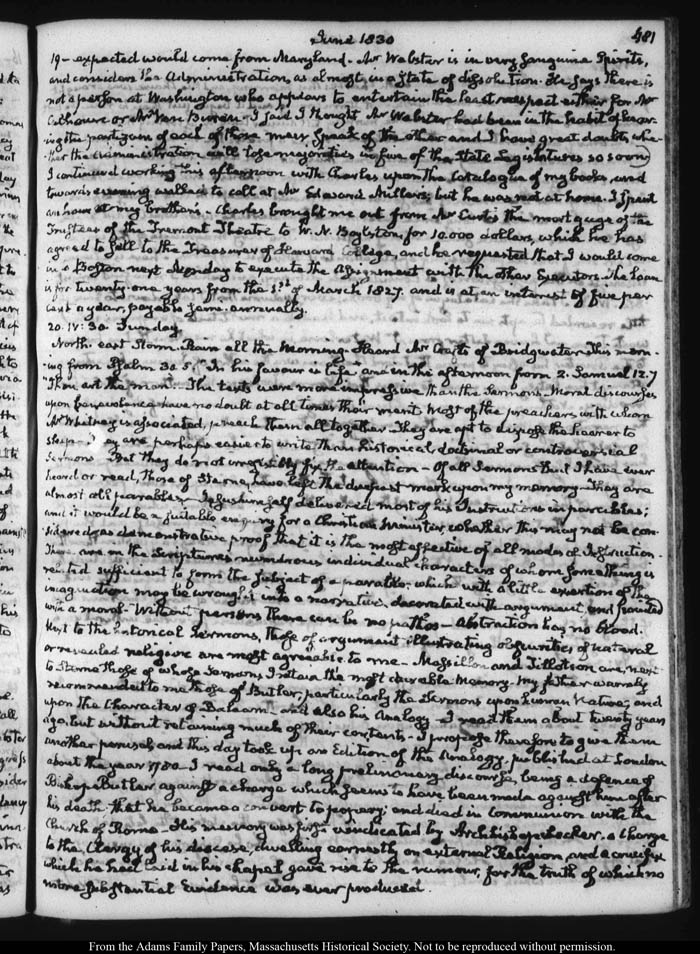 June 1830
481
19 - expected would come from Maryland. Mr Webster is in very sanguine Spirits,
and considers the Administration, as almost in a state of dissolution. He says there is
not a person at Washington who appears to entertain the least respect either for Mr
Calhoun or Mr Van Buren - I said I thought Mr Webster had been in the habit of hear-
ing the partizans of each of those men speak of the other and I have great doubts whe-
ther the Administration will lose majorities in five of the State Legislatures so soon
I continued working this afternoon with Charles upon the Catalogue of my books, and
towards evening walked to call at Mr Edward Miller's; but he was not at home. I spent
an hour at my brother's - Charles brought me out from Mr Curtis the mortgage of the
Trustees of the Tremont Theatre to W. N. Boylston, for 10.000 dollars, which he has
agreed to sell to the Treasurer of Harvard College, and he requested that I would come
in to Boston next Monday to execute the Assignment with the other Executors. The Loan
is for twenty-one years from the 1st of March 1827. and is at an interest of five per
cent a year, payable semi-annually.
20. IV: 30. Sunday
North-east Storm. Rain all the Morning. Heard Mr Crafts of Bridgwater. This morn-
ing from Psalm 30. 5. "In his favour is life" and in the afternoon from 2. Samuel 12.7
"Thou art the man". The texts were more impressive than the Sermons. Moral discourses
upon benevolence have no doubt at all times their merit. Most of the preachers with whom
Mr Whitney is associated, preach them all together. They are apt to dispose the hearer to
sleep. They are perhaps easier to write than historical, doctrinal or controversial
Sermons. But they do not irresistibly fix the attention - Of all Sermons that I have ever
heard or read, those of Sterne, have left the deepest mark upon my memory - They are
almost all parables - Jesus himself delivered most of his Instructions in parables;
and it would be a suitable enquiry for a Christian Minister, whether this may not be con-
sidered as demonstrative proof that it is the most effective of all modes of Instruction.
There are in the Scriptures numerous individual characters of whom something is
related sufficient to form the subject of a parable, which with a little exertion of the
imagination may be wrought into a narrative, decorated with argument, and pointed
with a moral - Without persons there can be no pathos - Abstraction has no blood.
Next to the historical Sermons, those of argument illustrating obscurities of natural
or revealed religion are most agreeable to me - Massillon and Tillotson are, next
to Sterne those of whose Sermons I retain the most durable Memory - My father warmly
recommended to me those of Butler, particularly the Sermons upon human Nature, and
upon the Character of Balaam, and also his Analogy - I read them about twenty years
ago, but without retaining much of their contents - I propose therefore to give them
another perusal, and this day took up an Edition of the Analogy, published at London
about the year 1780. I read only a long preliminary discourse, being a defence of
Bishop Butler against a charge which seems to have been made against him after
his death that he became a convert to popery; and died in communion with the
Church of Rome - His memory was first vindicated by Archbishop Secker. A Charge
to the Clergy of his diocese, dwelling earnestly on external Religion, and a crucifix
which he had laid in his chapel gave rise to the rumour, for the truth of which no
more substantial Evidence was ever produced.
From the Adams Family Papers, Massachusetts Historical Society. Not to be reproduced without permission.